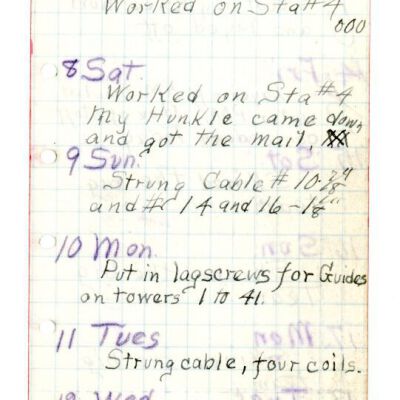 Worked on Sta#4
000
8 Sat
Worked on Sta #4
My Hunkle came down
and got the mail.
9 Sun
Strung Cable # 10-7/8"
and # 14 and 16-1 1/8"
10 Mon
Put in lagscrews for Guides
on towers 1 to 41.
11 Tues
Strung cable, four coils.
12 Wed